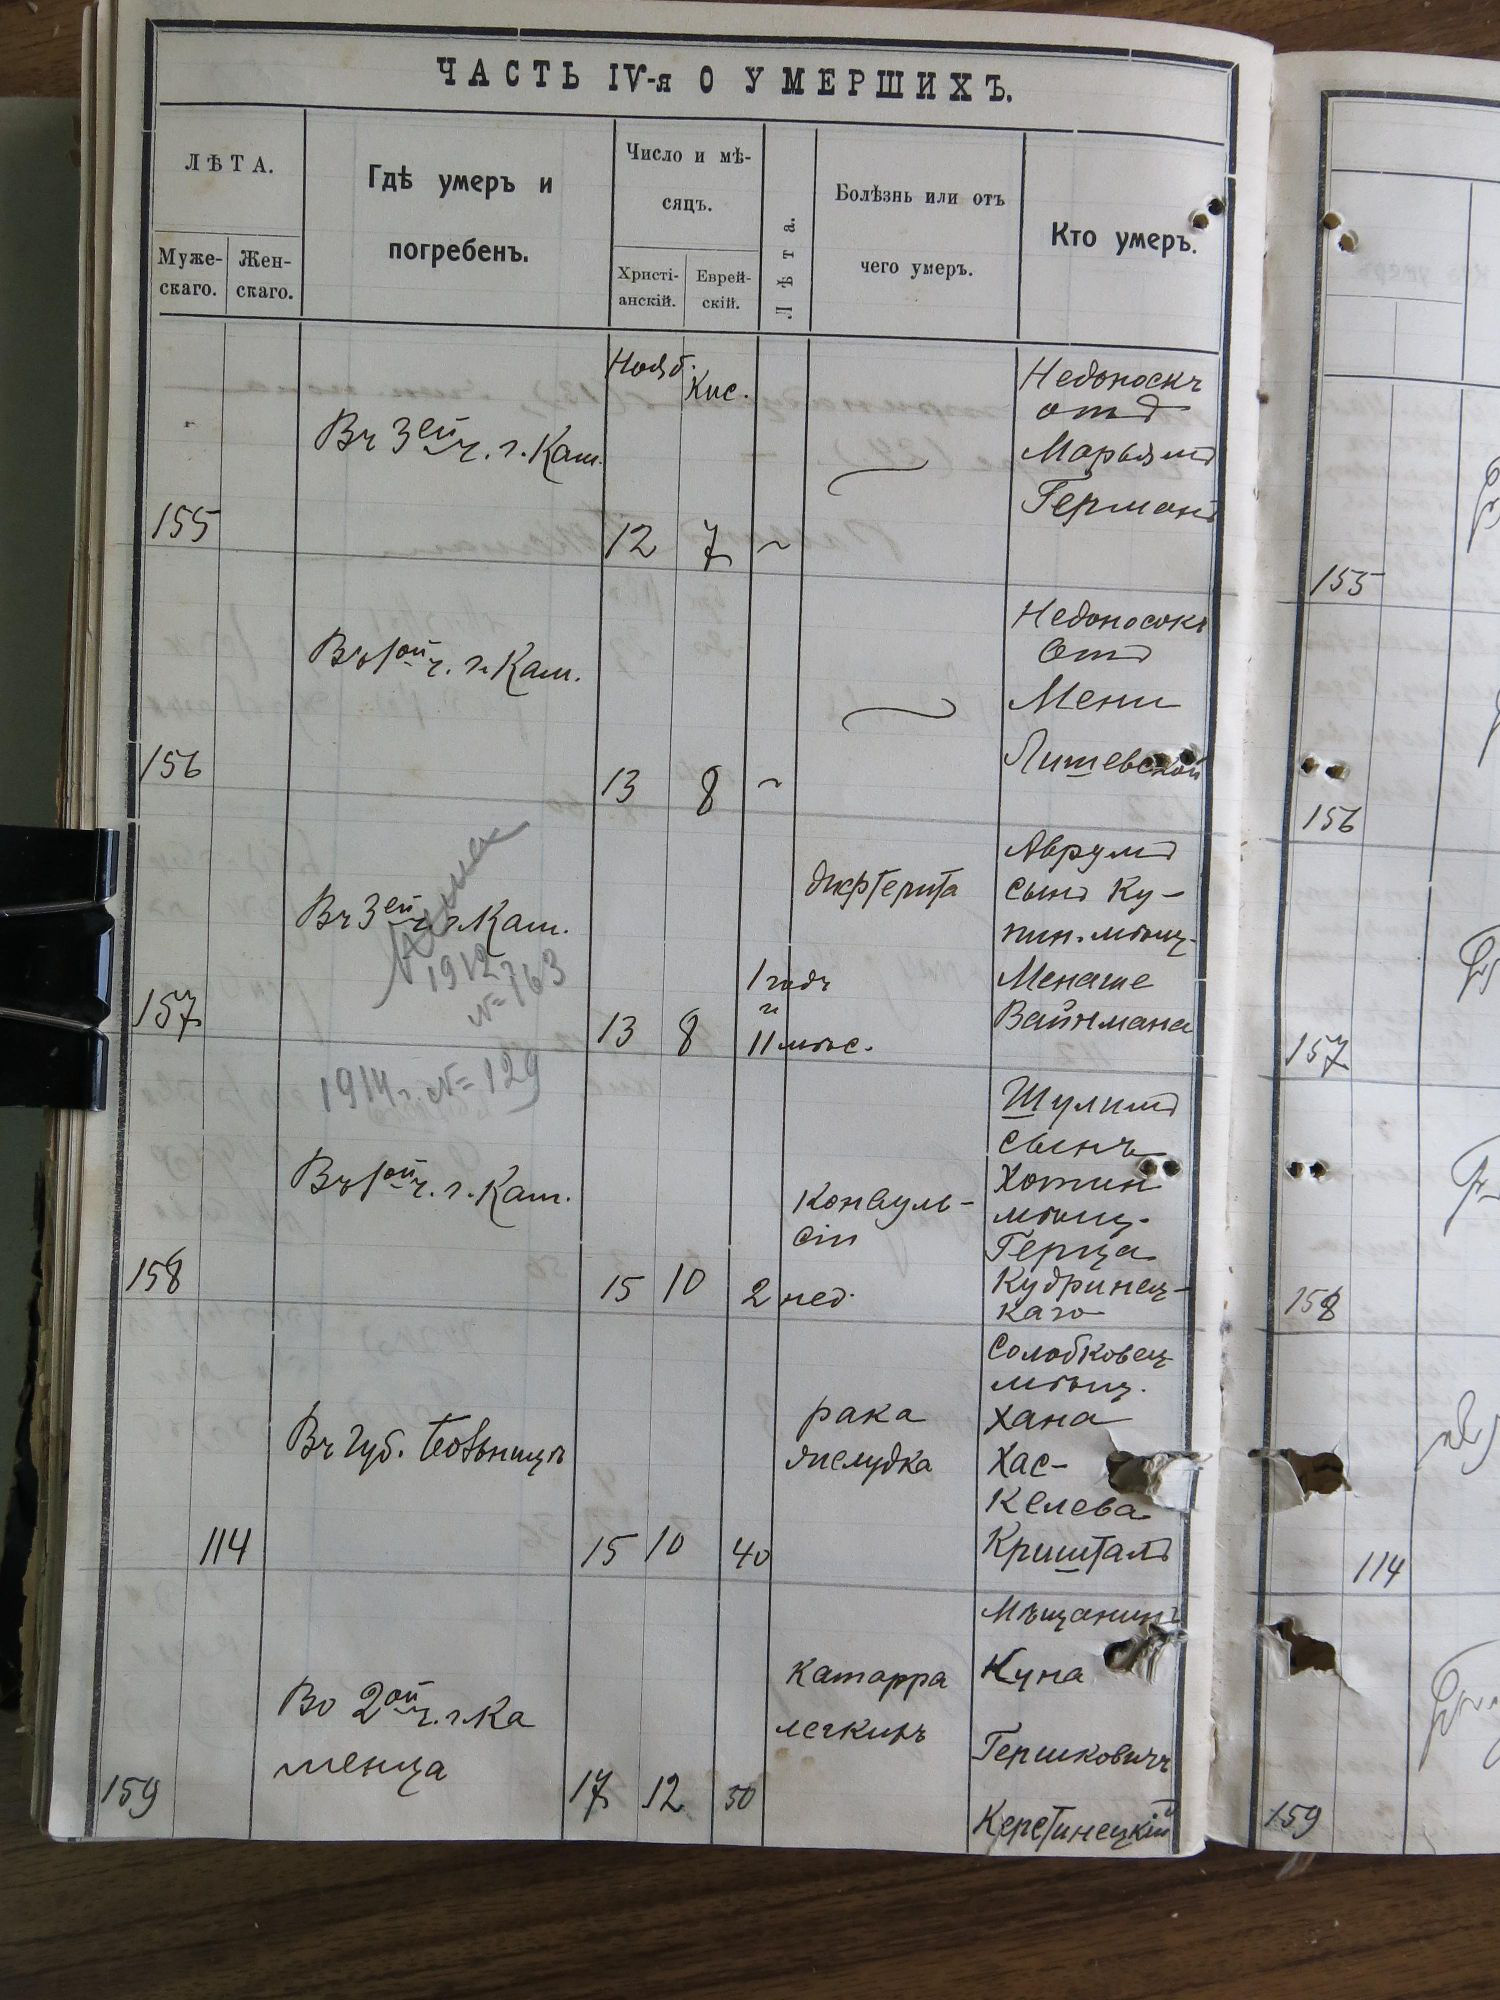 ЧАСТЬ IV-я О УМЕРШИХЪ.
ЛѢТА.
Муже-
скаго.
Жен-
скаго.
Гдѣ умеръ и
погребенъ.
Число и мѣ-
сяцъ.
Христі-
анскій.
Еврей-
скій.
Лѣта.
Болѣзнь или отъ
чего умеръ.
Кто умеръ.
Нояб.
Кис.
155
Въ 3ей ч. г. Кам.
12
7
~
Недоноскъ
отъ
Марьямъ
Германъ
156
Въ 1ой ч. г. Кам.
13
8
~
Недоносокъ
Отъ
Мени
Лишевской
157
Въ 3ей ч. г. Кам.
1912 г.
№ 163
13
8
1 годъ
и
11 мѣс.
дифтерита
Аврумъ
сынъ Ку-
пин. мѣщ.
Менаше
Вайнмана
1914 г. № 129
158
Въ 1ой ч. г. Кам.
15
10
2 нед.
Конвуль-
сіи
Шулимъ
сынъ
Хотин
мѣщ.
Герца
Кудринец-
каго
114
Въ Губ. больницѣ
15
10
40
рака
желудка
Солобковец
мѣщ.
Хана
Хас-
келева
Кришталъ
159
Во 2ой ч. г. Ка
менца
17
12
50
катарра
легкихъ
Мѣщанинъ
Куна
Гершковичъ
Керстинецкій
155
156
157
158
114
159